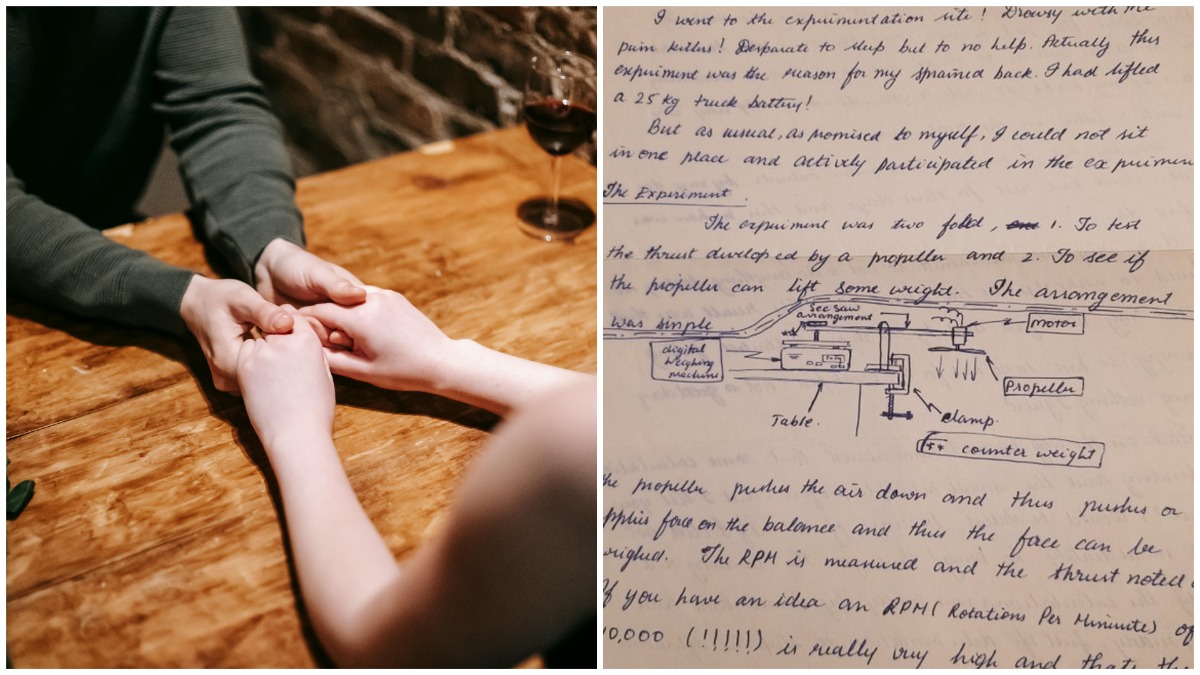 I went to the experimentation site! Drowsy with the
pain killers! Desparate to sleep but to no help. Actually this
experiment was the reason for my sprained back. I had lifted
a 25 kg truck battery!
But as usual, as promised to myself, I could not sit
in one place and actively participated in the experimen
The Experiment.
The experiment was two fold, 1. To test
the thrust developed by a propeller and 2. To see if
the propeller can lift some weight. The arrangement
was simple
See saw
arrangement
**
motor
digital
weighing
machine
Propeller
Table.
clamp.
** counter weight
he propeller pushes the air down and thus pushes or
pplies force on the balance and thus the force can be
weighed. The RPM is measured and the thrust noted
If you have an idea an RPM (Rotations Per Miniute) of
10,000 (!!!!!!) is really very high and thats the